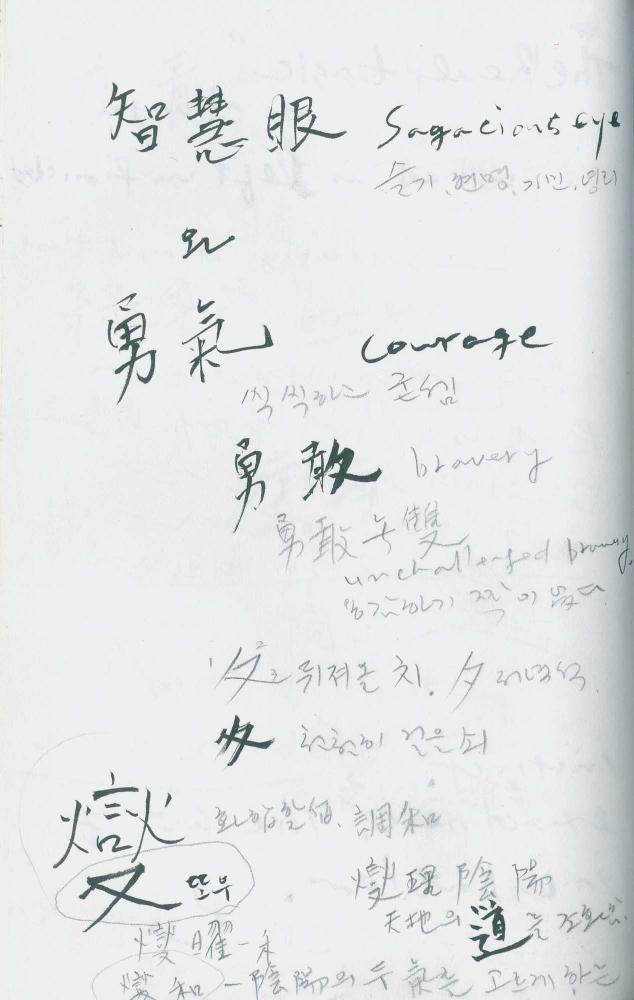 智慧眼 Sagacious eye
슬기, 현명, 기민, 영리
와
勇氣 courage
씩씩하는
勇敢 bravery
勇敢 雙
unchallenged bravery
용감하기 짝이 없다
夂 뒤져올 치. 夕 저녁석.
夊 천천히 걸을 쇠
燮 화합할 섭. 調和
又 또우
燮理陰陽
天地의 道를
燮曜
燮和 - 陰陽의 두 氣를 고르게 하는